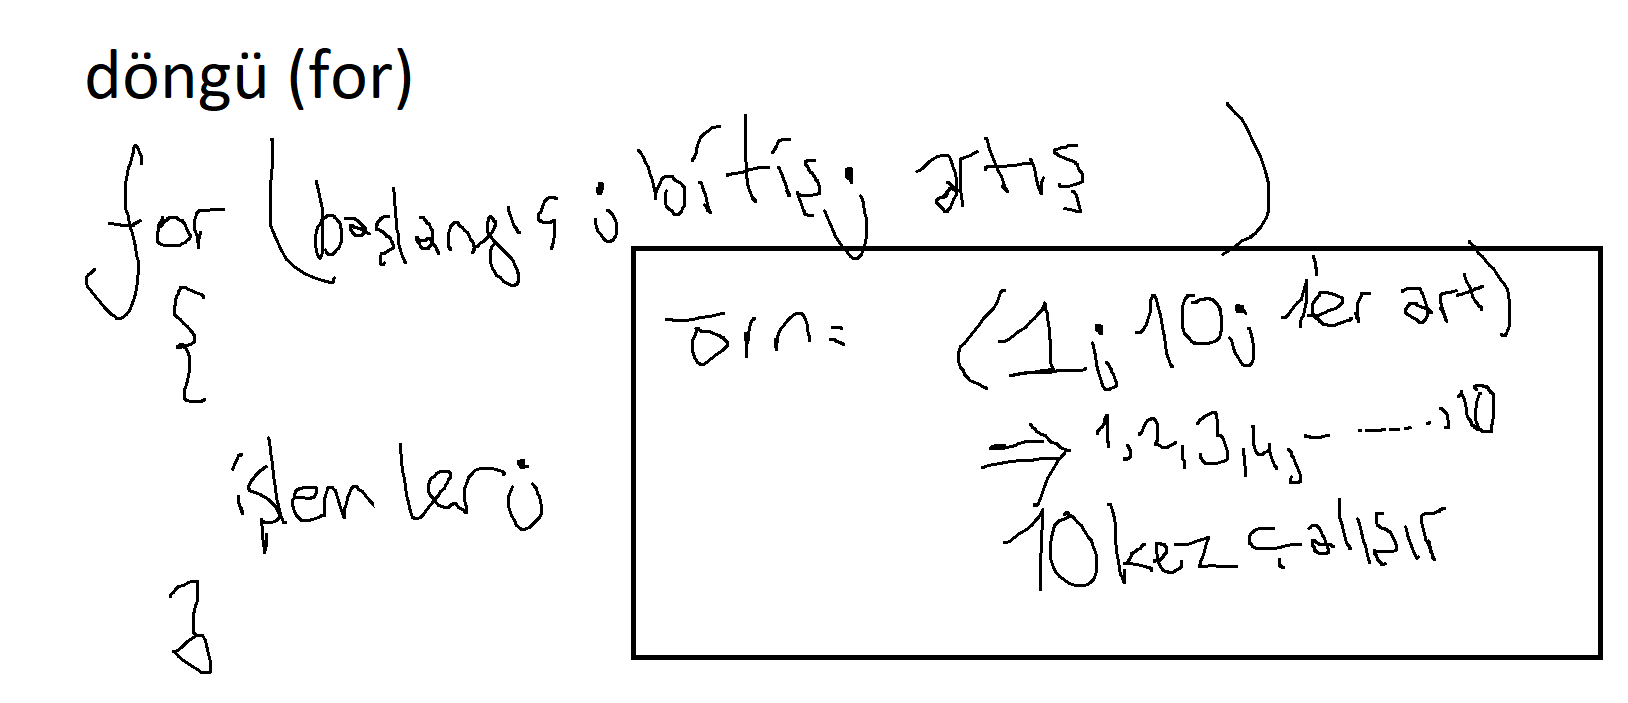 döngü (for)
for (başlangıç ; bitiş; artış )
{
işlemler;
}
örn= (1; 10; 1'er art)
⇒ 1,2,3,4,- ......,10
10 kez çalışır